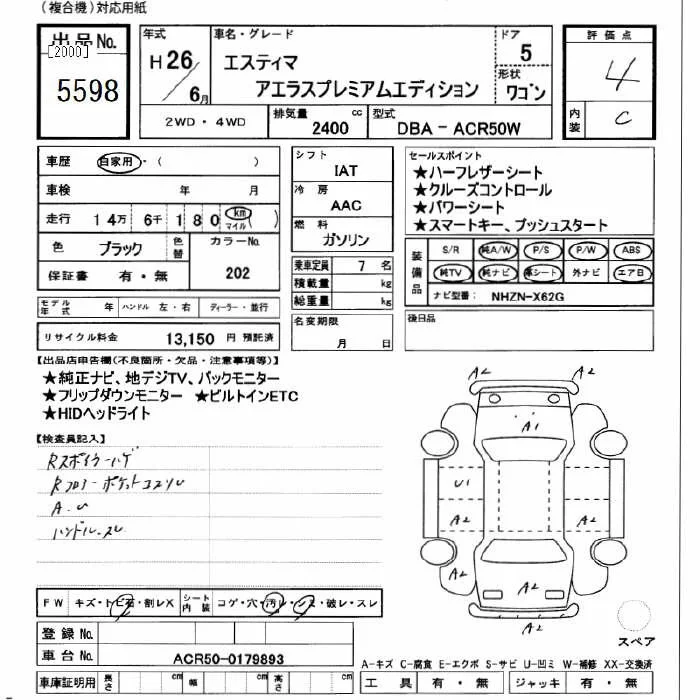 (複合機)対応用紙
出品No.
[2000]
5598
年式
H26/6月
車名・グレード
エスティマ
アエラスプレミアムエディション
ドア
5
形状
ワゴン
評価点
4
内装
C
2WD・4WD
排気量 2400 cc
型式 DBA-ACR50W
車歴 自家用・( )
車検 年 月
走行 14万 6千 180 km マイル ( )
色 ブラック 色替
カラーNo. 202
保証書 有・無
シフト
IAT
冷房
AAC
燃料
ガソリン
乗車定員 7 名
積載量 kg
総重量 kg
セールスポイント
★ハーフレザーシート
★クルーズコントロール
★パワーシート
★スマートキー、プッシュスタート
装備品
S/R 純A/W P/S P/W ABS
純TV 純ナビ 革シート 外ナビ エアB
ナビ型番: NHZN-X62G
モデル年式 年 ハンドル 左・右 ディーラー・並行
リサイクル料金 13,150 円 預託済
名変期限
月 日
後日品
【出品店申告欄(不良箇所・欠品・注意事項等)】
★純正ナビ、地デジTV、バックモニター
★フリップダウンモニター ★ビルトインETC
★HIDヘッドライト
【検査員記入】
Rスポイラーハゲ
ハンドルスレ
A2
A2
A1
U1
A2
A2
A2
A2
A2
スペア
FW キズ・トビ石・割レX
シート内装 コゲ・穴・汚レ・シミ・破レ・スレ
登録No.
車台No. ACR50-0179893
車庫証明用 長さ cm 幅 cm 高さ cm
A-キズ C-腐食 E-エクボ S-サビ U-凹ミ W-補修 XX-交換済
工具 有・無 ジャッキ 有・無